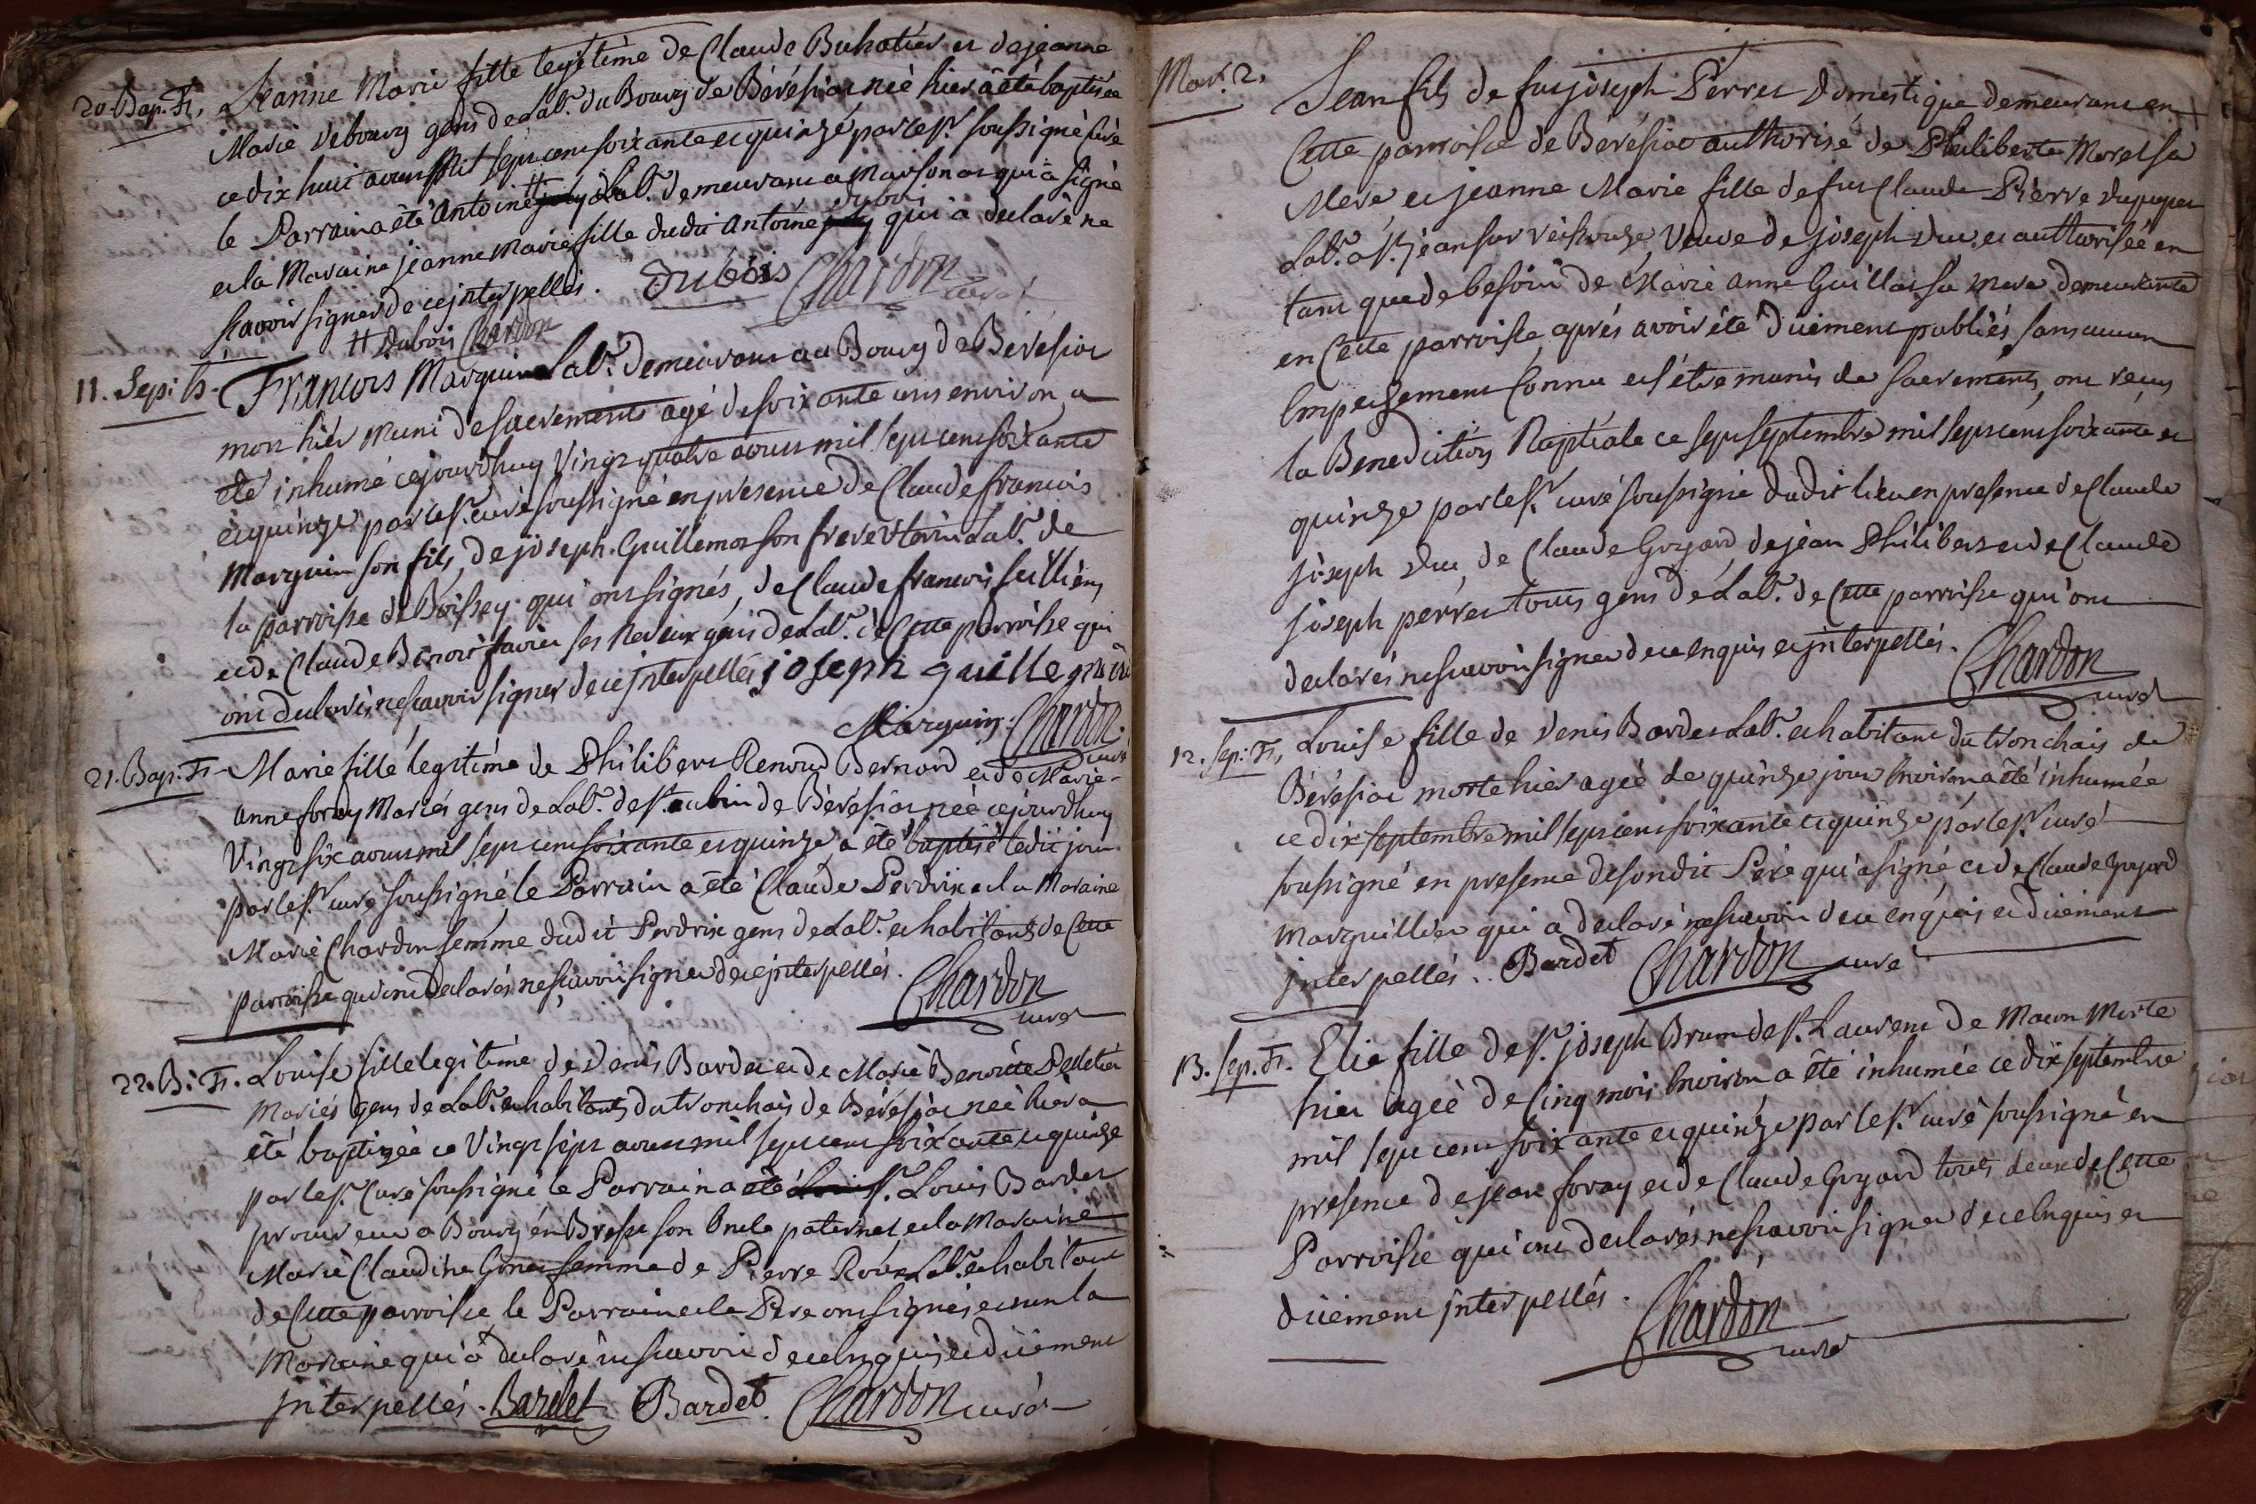 20. Bap. F. Jeanne Marie fille legitime de Claude Buhatier et de jeanne
Marie debourg gens de Lab.r du Bourg de Bérésiat née hier a été baptisée
ce dix huit aoust mil sept cent soixante et quinze par le s.r soussigné curé
le Parrain a été Antoine # Lab.r demeurant a Marsonat qui a signé
et la Maraine jeanne Marie fille dudit Antoine dubois qui a declaré ne
scavoir signer de ce jnterpellés. Dubois Chardon curé
# dubois Chardon
11. Sep: h. Francois Marguin Lab.r demeurant au Bourg de Bérésiat
mort hier muni de sacrements agé de soixante ans environ a
été inhumé cejourdhuy vingt quatre aoust mil sept cent soixante
et quinze par le s.r curé soussigné en presence de Claude francois
Marguin son fils, de joseph Guillemot son frere uterin Lab.r de
la parroisse de Boissey qui ont signés, de Claude francois
et de Claude Benoit favier ses neveux gens de Lab.r de Cette parroisse qui
ont declarés ne scavoir signer de ce jnterpellés joseph
Marguin. Chardon curé
21. Bap. F. Marie fille legitime de Philibert Renoud Bernard et de Marie
anne foray Mariés gens de Lab.r de s.t aubin de Béréziat née cejourdhuy
Vingt six aoust mil sept cent soixante et quinze, a été baptisé ledit jour
par le s.r curé soussigné, le Parrain a été Claude Perdrix et la Maraine
Marie Chardon femme dudit Perdrix gens de Lab.r et habitants de Cette
parroisse qui ont declarés ne scavoir signer de ce jnterpellés.
Chardon curé
22. B. F. Louise fille legitime de denis Bardet et de Marie Benoite Pelletier
Mariés gens de Lab.r et habitants du tronchais de Béréziat née hier a
été baptizée ce Vingt sept aoust mil sept cent soixante et quinze
par le s.r Curé soussigné le Parrain a été s.r Louis Bardet
procureur a Bourg en Bresse son Oncle paternel et la Maraine
Marie Claudine femme de Pierre Roux Lab.r et habitant
de Cette parroisse, le Parrain et le Pere ont signés et non la
Maraine qui a declaré ne scavoir de ce enquis et duement
jnterpellés. Bardet Bardet. Chardon curé
Mar. 2. Jean fils de fut joseph Perret domestique demeurant en
Cette parroisse de Béréziat authorisé de Philiberte Morel sa
Mere et jeanne Marie fille de fut Claude Pierre dupuget
Lab.r a s.t jean sur Veissouze Veuve de joseph duc et authorisée en
tant que de besoin de Marie anne Guillot sa mere demeurante
en Cette parroisse, aprés avoir été duement publiés sans aucun
Empechement Connu et s'étre munis de sacrements, ont recus
la Benediction Nuptiale ce sept septembre mil sept cent soixante et
quinze par le s.r curé soussigné dudit lieu en presence de Claude
joseph duc, de Claude Goyard, de jean Philibert et de Claude
joseph perret tous gens de Lab.r de Cette parroisse qui ont
declarés ne scavoir signer de ce enquis et jnterpellés.
Chardon curé
12. Sep: F. Louise fille de denis Bardet Lab.r et habitant du tronchais de
Béréziat morte hier agée de quinze jours environ a été inhumée
ce dix septembre mil sept cent soixante et quinze par le s.r curé
soussigné en presence de sondit Pére qui a signé et de Claude Goyard
Marguillier qui a declaré ne scavoir de ce enquis et duement
jnterpellés. Bardet Chardon curé
13. Sep. F. Elie fille de s.r joseph Brun de s.t Laurent de Macon Morte
hier agée de Cinq mois Environ a été inhumée ce dix septembre
mil sept cent soixante et quinze par le s.r curé soussigné en
présence de jean foray et de Claude Goyard tous deux de Cette
Parroisse qui ont declarés ne scavoir signer de ce Enquis et
duement jnterpellés.
Chardon curé